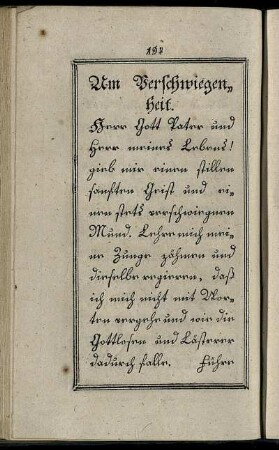 194
Um Verschwiegen„
heit.
Herr Gott Vater und
Herr meines Lebens!
gieb mir einen stillen
sanften Geist und ei„
nen stets verschwiegnen
Mund. Lehre mich mei„
ne Zunge zähmen und
dieselbe regieren, daß
ich mich nicht mit Wor„
ten vergehe und wie die
Gottlosen und Lästerer
dadurch falle. Führe